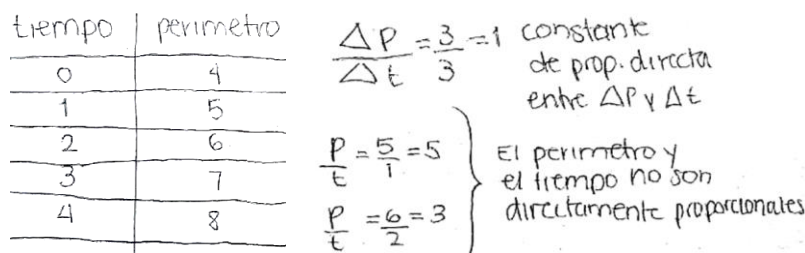 tiempo | perimetro
0 | 4
1 | 5
2 | 6
3 | 7
4 | 8
ΔP/Δt = 3/3 = 1 constante
de prop. directa
entre ΔP y Δt
P/t = 5/1 = 5
P/t = 6/2 = 3
El perimetro y
el tiempo no son
directamente proporcionales